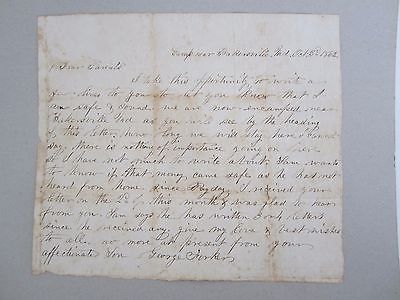 Camp near Bakersville, Md. Oct. 5th 1862
Dear Parents
I take this opportunity to write a
few lines to you to let you know that I
am safe & sound we are now encamped near
Bakersville Md as you will see by the heading
of this letter, how long we will stay here I cannot
say, there is nothing of importance going on here
so I have not much to write about. Sam wants
to know if that money came safe as he has not
heard from home since Payday I received your
letter on the 2d of this month & was glad to hear
from you. Sam says he has written 3 or 4 letters
since he received any, give my love & best wishes
to all, no more at present from your
affectionate Son George Forker